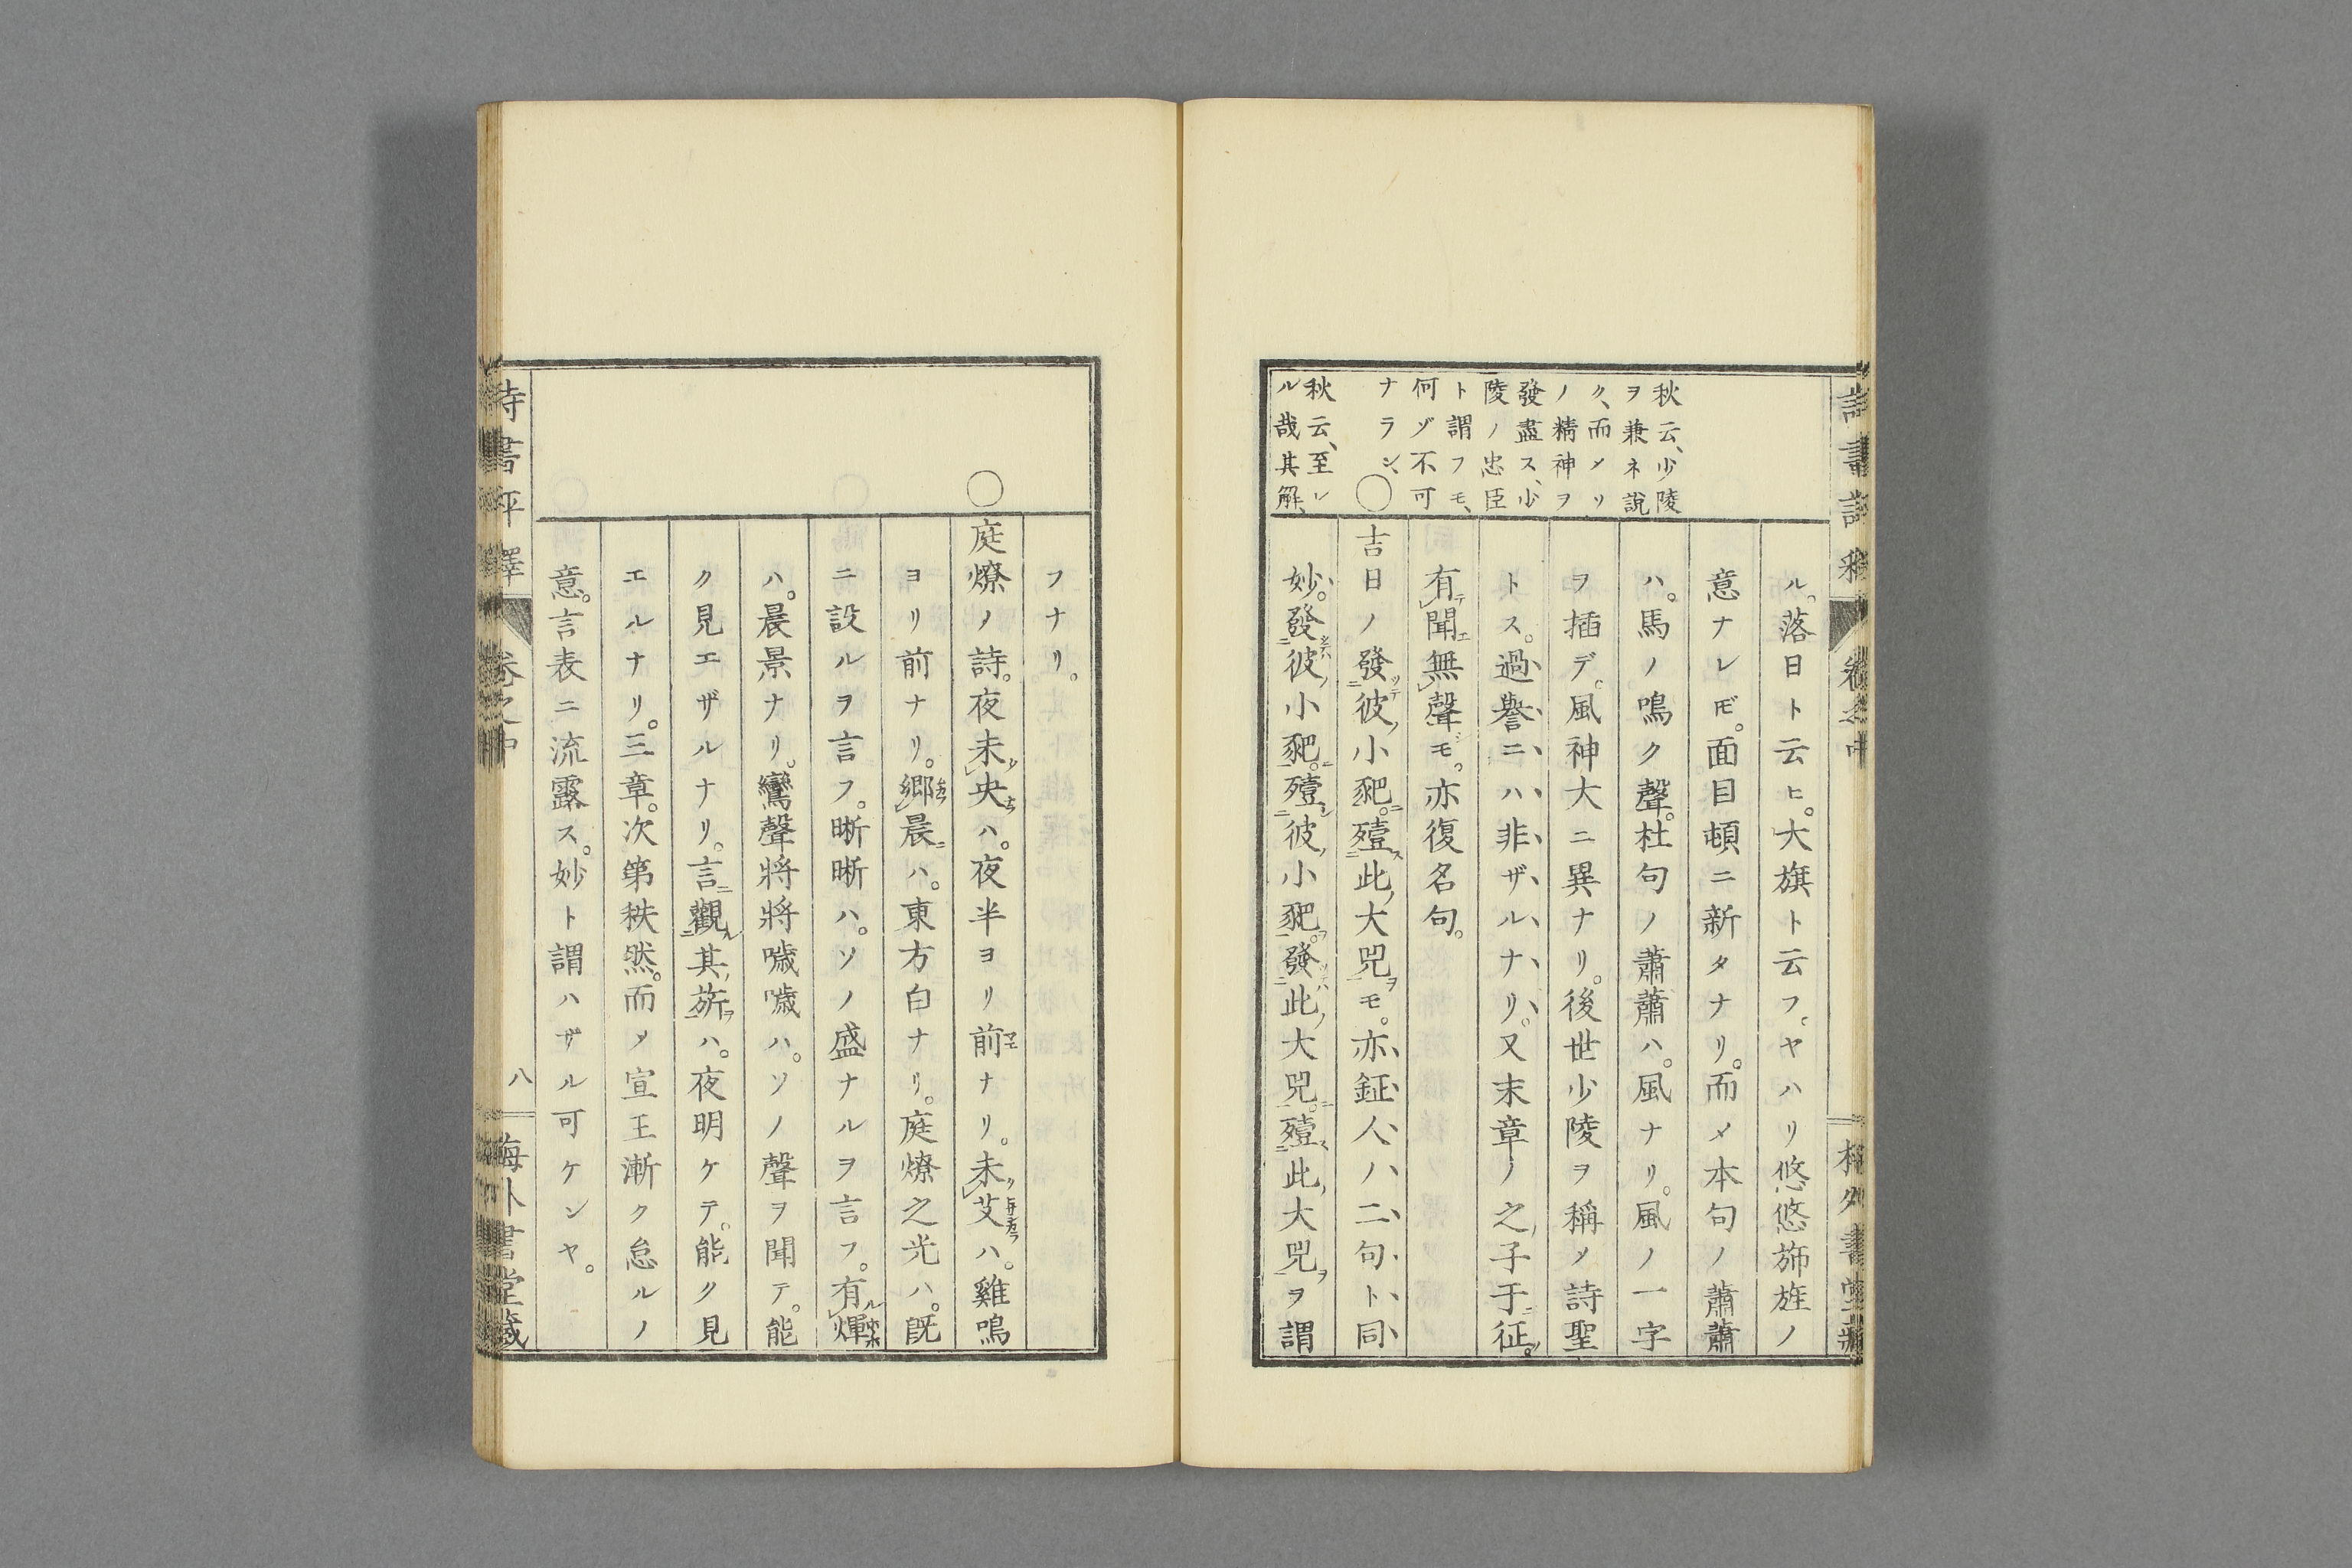 秋云、少陵
ヲ兼ネ說
ク、而メリ
ノ精神ヲ
發盡ス、少
陵ノ忠臣
ト謂フモ、
何ゾ不可
ナラン、
秋云、至レ
ル哉其解、
ル。落日ト云ヒ。大旗ト云フ。ヤハリ悠悠斾旌ノ
意ナレ𪜈。面目頓ニ新タナリ。而メ本句ノ蕭蕭
ハ。馬ノ鳴ク聲。杜句ノ蕭蕭ハ。風ナリ。風ノ一字
ヲ插デ。風神大ニ異ナリ。後世少陵ヲ稱メ詩聖
トス。過譽ニハ非ザルナリ。又末章ノ之子于征。
有聞無聲モ。亦復名句。
○吉日ノ發彼小豝。殪此大兕モ。亦鉦人ハ二句ト同
妙。發彼小豝。殪彼小豝。發此大兕。殪此大兕ヲ謂
フナリ。
○庭燎ノ詩。夜未央ハ。夜半ヨリ前ナリ。未艾ハ。雞鳴
ヨリ前ナリ。鄉晨ハ。東方白ナリ。庭燎之光ハ。既
ニ設ルヲ言フ。晣晣ハ。ソノ盛ナルヲ言フ。有煇
ハ。晨景ナリ。鸞聲將將噦噦ハ。ソノ聲ヲ聞テ。能
ク見エザルナリ。言觀其旂ハ。夜明ケテ。能ク見
エルナリ。三章。次第秩然。而メ宣王漸ク怠ルノ
意。言表ニ流露ス。妙ト謂ハザル可ケンヤ。
詩書評釋 卷之中 八 梅外書堂藏